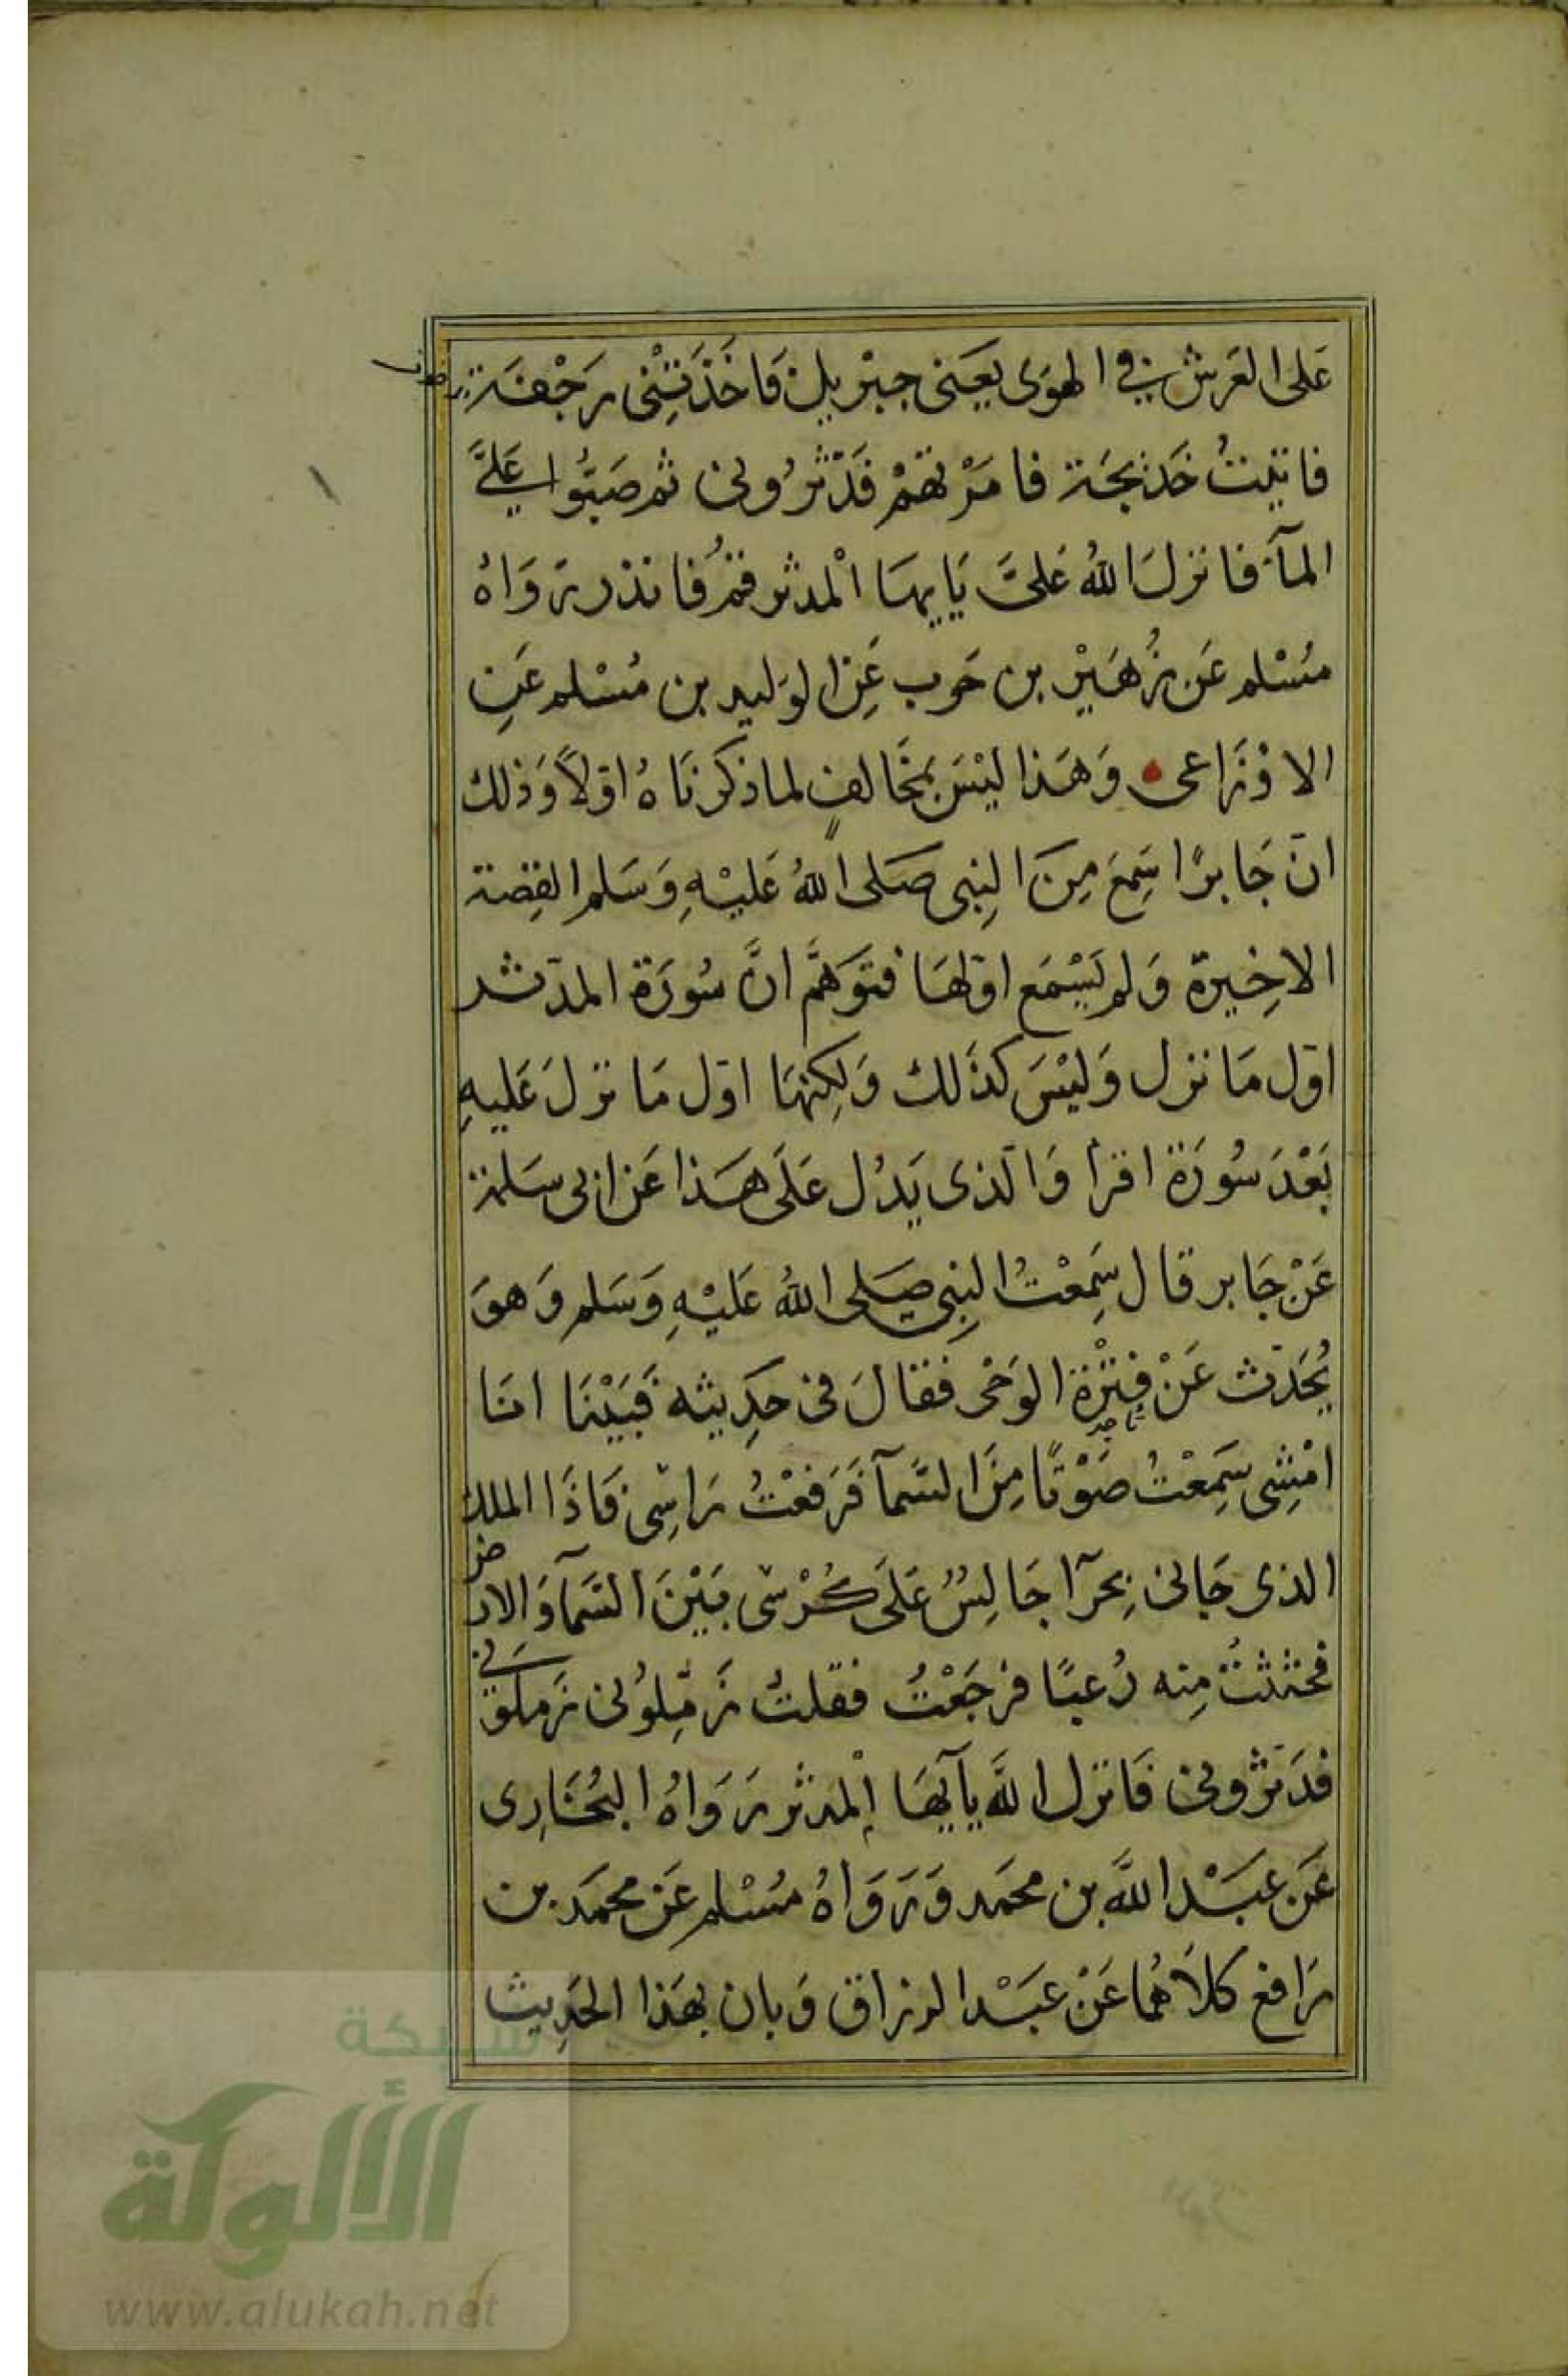 عَلى العَرش في الهوَى يَعَني جبْريل فَاخَذَتِنْى رَجْفَة
فاتيتُ خَديجَة فامَرْتهمْ فَدَثرُونى ثم صَبُّوا عَليَّ
المآء فانزلَ اللهُ عَليَّ يَايهَا الْمدثر قمْ فَانذر رَوَاهُ
مُسْلم عَن زُهَيْر بن حَرب عَنِ الوَليد بن مُسْلم عَنِ
الاوْزَاعى وَهَذا ليْسَ بمخَالفٍ لما ذكرنَاهُ اوّلاً وَذلك
انّ جَابرًا سَمِعَ مِنَ النِبى صَلى اللهُ عَليْهِ وَسَلم القِصة
الاخِيرة وَلم يَسْمَع اوّلهَا فتَوَهَّمَ انَّ سُورَة المدّثر
اوّل مَا نزل وَليْسَ كذَلك وَلكِنهَا اوّل مَا نزلَ عَليهِ
بَعْدَ سُورَة اقرأ وَالذى يَدُل عَلَى هَذا عَن ابى سَلمة
عَنْ جَابر قال سَمِعْتُ النِبى صَلى اللهُ عَليْهِ وَسَلم وَهوَ
يُحَدّث عَنْ فتْرَة الوَحْى فَقالَ فى حَدِيثه فَبَيْنَا انَا
امْشِى سَمِعْتُ صَوْتًا مِنَ السَّمآ فَرَفعْتُ رَاسِى فَاذَا الملك
الذى جَانى بِحرَآ جَالِسٌ عَلَى كُرْسى بَيْنَ السَّمآ وَالارض
فجثثتُ مِنه رُعبًا فرجَعْتُ فقلتُ زَمّلوُنى زَملوُنى
فدَثرُونى فَانزل اللَّه يآيهَا المدثر رَوَاهُ البُخَارِى
عَن عَبْد اللَّه بن محمَد وَرَوَاهُ مُسْلم عَن محمَد بن
رَافع كلاَهُما عَنْ عَبْد الرزاق وَبان بهَذا الحَدِيث
شبكة
الألوكة
www.alukah.net